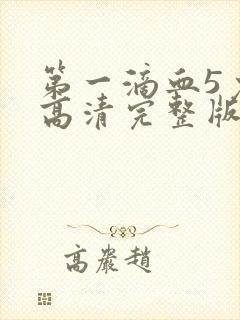 第一滴血5
高清完整版
高岩趙